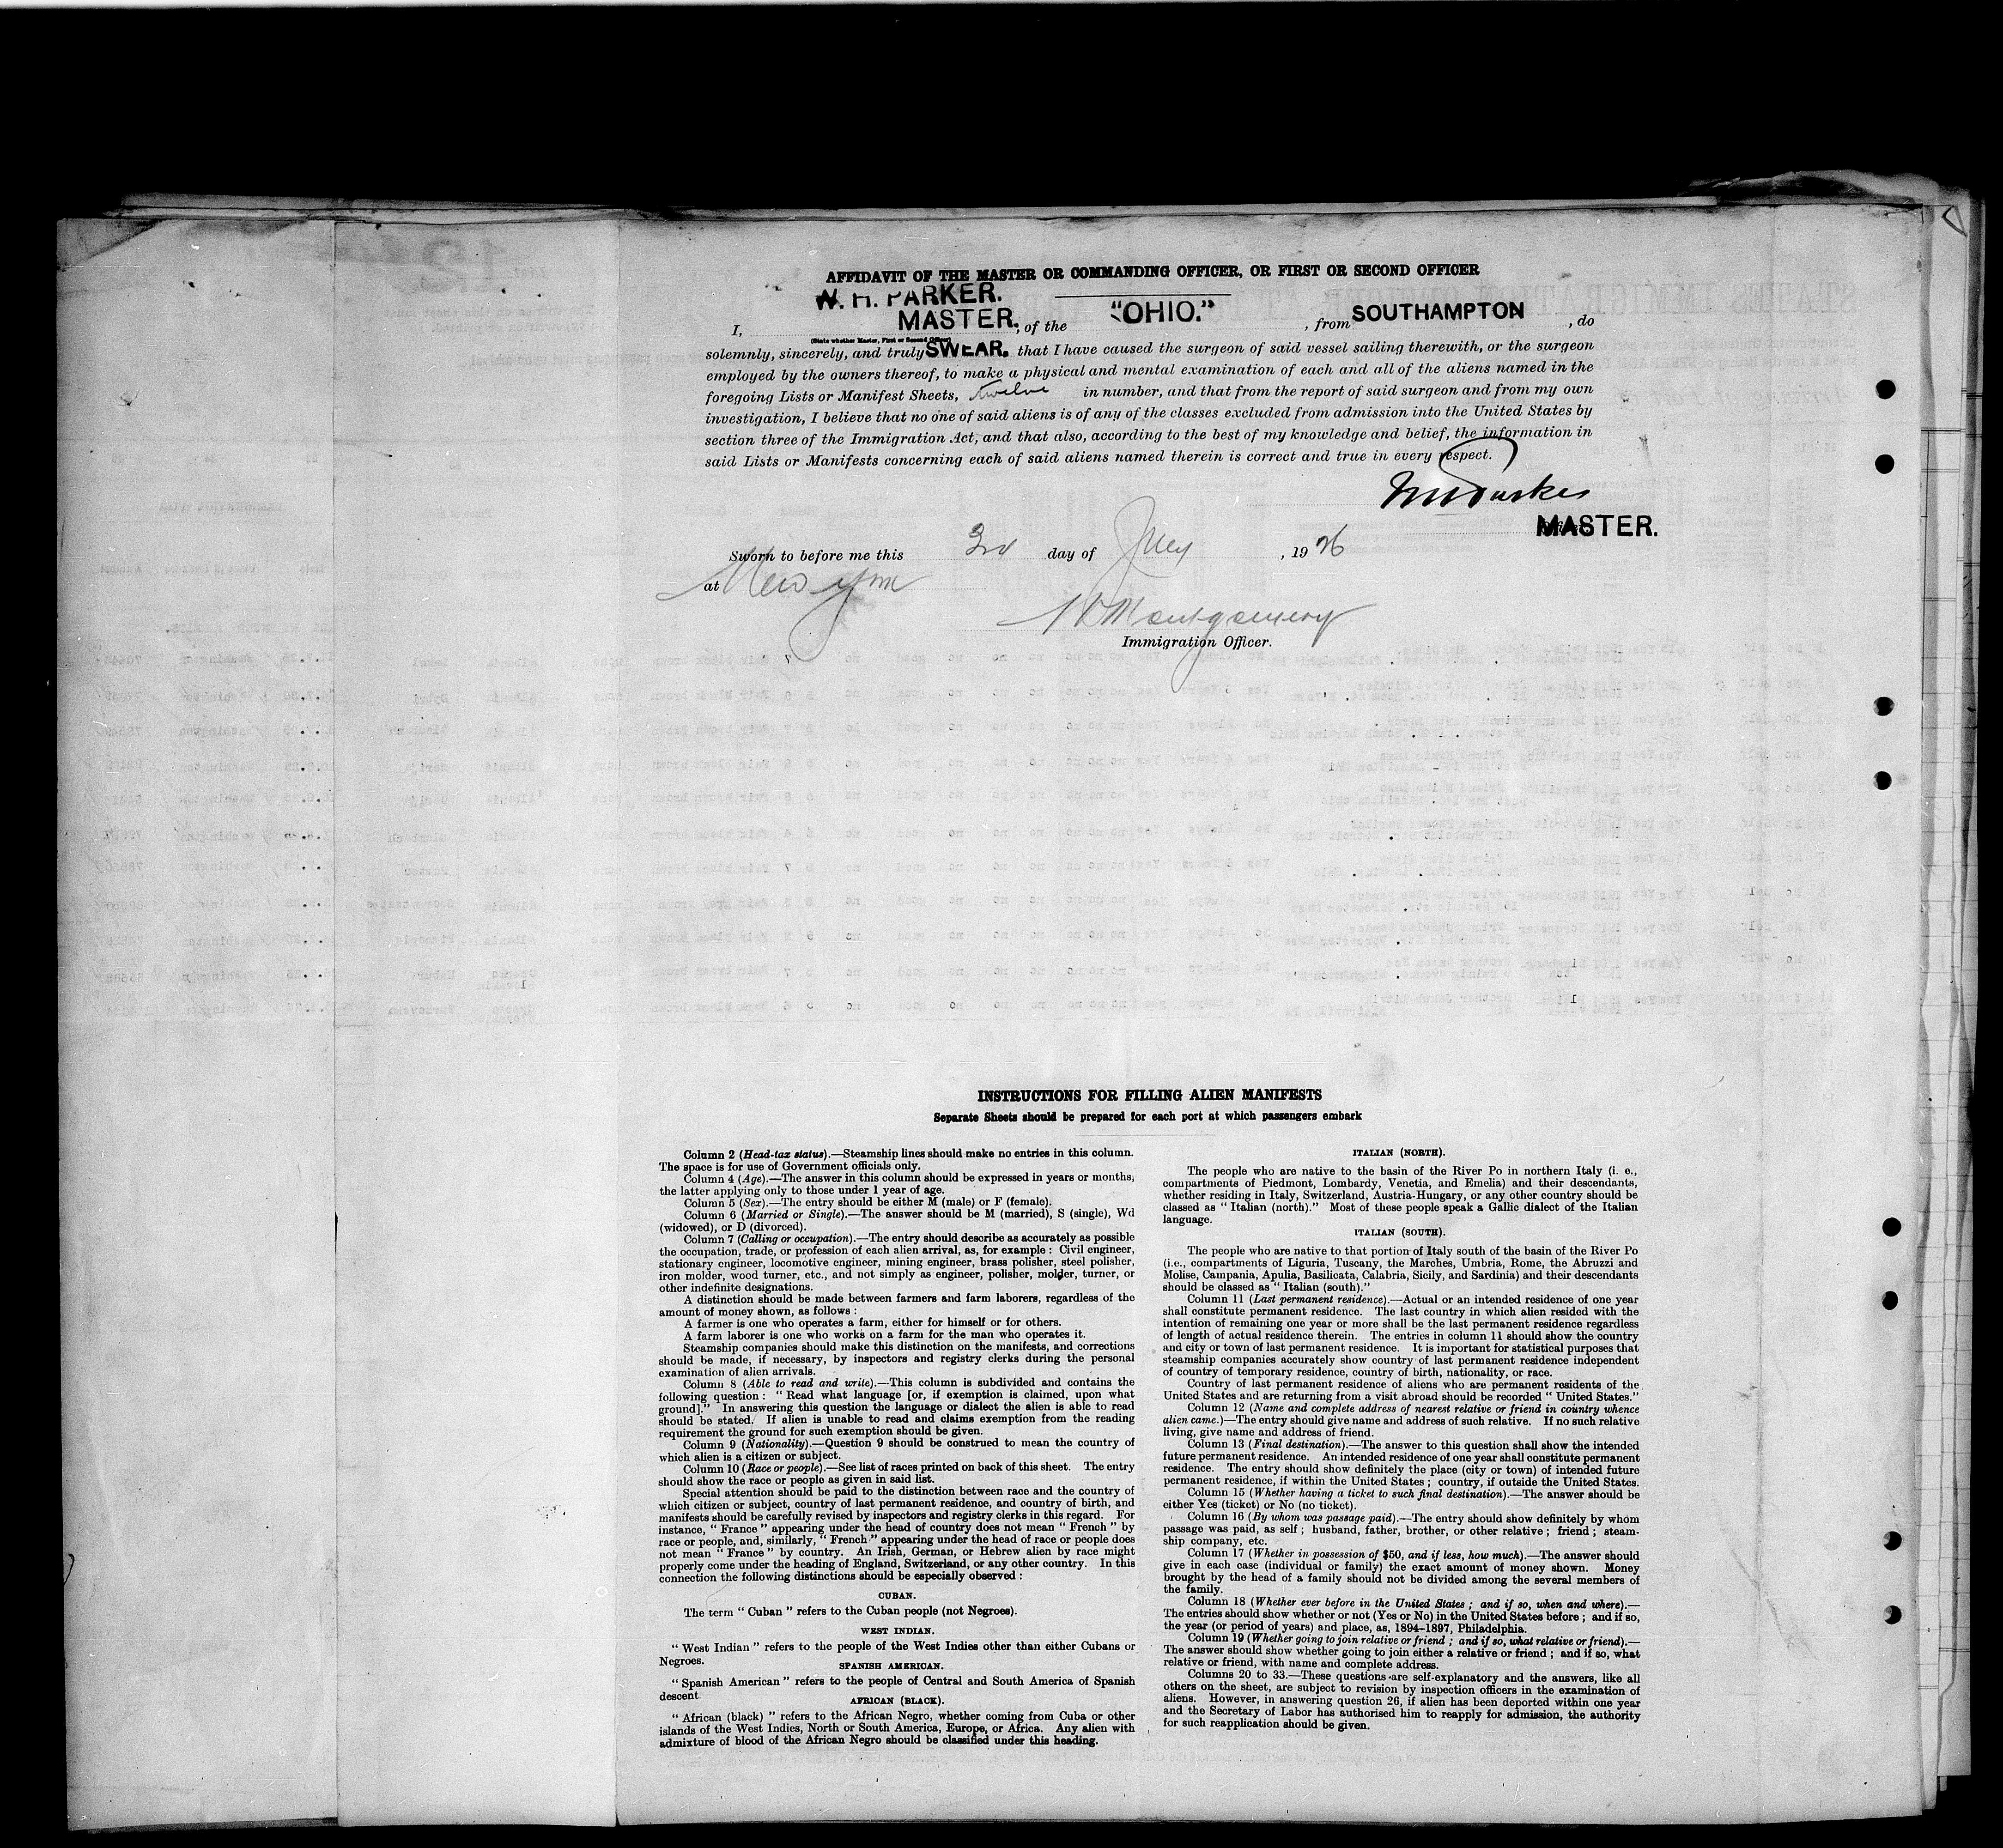 AFFIDAVIT OF THE MASTER OR COMMANDING OFFICER, OR FIRST OR SECOND OFFICER
W. H. PARKER.
I, MASTER, of the "OHIO." , from SOUTHAMPTON , do
(State whether Master, First or Second Officer)
solemnly, sincerely, and truly SWEAR, that I have caused the surgeon of said vessel sailing therewith, or the surgeon
employed by the owners thereof, to make a physical and mental examination of each and all of the aliens named in the
foregoing Lists or Manifest Sheets, twelve in number, and that from the report of said surgeon and from my own
investigation, I believe that no one of said aliens is of any of the classes excluded from admission into the United States by
section three of the Immigration Act, and that also, according to the best of my knowledge and belief, the information in
said Lists or Manifests concerning each of said aliens named therein is correct and true in every respect.
MASTER.
Sworn to before me this 3rd day of July , 1926
at New York
Montgomery
Immigration Officer.
INSTRUCTIONS FOR FILLING ALIEN MANIFESTS
Separate Sheets should be prepared for each port at which passengers embark
Column 2 (Head-tax status).—Steamship lines should make no entries in this column.
The space is for use of Government officials only.
Column 4 (Age).—The answer in this column should be expressed in years or months,
the latter applying only to those under 1 year of age.
Column 5 (Sex).—The entry should be either M (male) or F (female).
Column 6 (Married or Single).—The answer should be M (married), S (single), Wd
(widowed), or D (divorced).
Column 7 (Calling or occupation).—The entry should describe as accurately as possible
the occupation, trade, or profession of each alien arrival, as, for example : Civil engineer,
stationary engineer, locomotive engineer, mining engineer, brass polisher, steel polisher,
iron molder, wood turner, etc., and not simply as engineer, polisher, molder, turner, or
other indefinite designations.
A distinction should be made between farmers and farm laborers, regardless of the
amount of money shown, as follows :
A farmer is one who operates a farm, either for himself or for others.
A farm laborer is one who works on a farm for the man who operates it.
Steamship companies should make this distinction on the manifests, and corrections
should be made, if necessary, by inspectors and registry clerks during the personal
examination of alien arrivals.
Column 8 (Able to read and write).—This column is subdivided and contains the
following question : " Read what language [or, if exemption is claimed, upon what
ground]." In answering this question the language or dialect the alien is able to read
should be stated. If alien is unable to read and claims exemption from the reading
requirement the ground for such exemption should be given.
Column 9 (Nationality).—Question 9 should be construed to mean the country of
which alien is a citizen or subject.
Column 10 (Race or people).—See list of races printed on back of this sheet. The entry
should show the race or people as given in said list.
Special attention should be paid to the distinction between race and the country of
which citizen or subject, country of last permanent residence, and country of birth, and
manifests should be carefully revised by inspectors and registry clerks in this regard. For
instance, " France " appearing under the head of country does not mean " French " by
race or people, and, similarly, " French " appearing under the head of race or people does
not mean " France " by country. An Irish, German, or Hebrew alien by race might
properly come under the heading of England, Switzerland, or any other country. In this
connection the following distinctions should be especially observed :
CUBAN.
The term " Cuban " refers to the Cuban people (not Negroes).
WEST INDIAN.
" West Indian " refers to the people of the West Indies other than either Cubans or
Negroes.
SPANISH AMERICAN.
" Spanish American " refers to the people of Central and South America of Spanish
descent.
AFRICAN (BLACK).
" African (black) " refers to the African Negro, whether coming from Cuba or other
islands of the West Indies, North or South America, Europe, or Africa. Any alien with
admixture of blood of the African Negro should be classified under this heading.
ITALIAN (NORTH).
The people who are native to the basin of the River Po in northern Italy (i. e.,
compartments of Piedmont, Lombardy, Venetia, and Emelia) and their descendants,
whether residing in Italy, Switzerland, Austria-Hungary, or any other country should be
classed as " Italian (north)." Most of these people speak a Gallic dialect of the Italian
language.
ITALIAN (SOUTH).
The people who are native to that portion of Italy south of the basin of the River Po
(i.e., compartments of Liguria, Tuscany, the Marches, Umbria, Rome, the Abruzzi and
Molise, Campania, Apulia, Basilicata, Calabria, Sicily, and Sardinia) and their descendants
should be classed as " Italian (south)."
Column 11 (Last permanent residence).—Actual or an intended residence of one year
shall constitute permanent residence. The last country in which alien resided with the
intention of remaining one year or more shall be the last permanent residence regardless
of length of actual residence therein. The entries in column 11 should show the country
and city or town of last permanent residence. It is important for statistical purposes that
steamship companies accurately show country of last permanent residence independent
of country of temporary residence, country of birth, nationality, or race.
Country of last permanent residence of aliens who are permanent residents of the
United States and are returning from a visit abroad should be recorded " United States."
Column 12 (Name and complete address of nearest relative or friend in country whence
alien came.)—The entry should give name and address of such relative. If no such relative
living, give name and address of friend.
Column 13 (Final destination).—The answer to this question shall show the intended
future permanent residence. An intended residence of one year shall constitute permanent
residence. The entry should show definitely the place (city or town) of intended future
permanent residence, if within the United States ; country, if outside the United States.
Column 15 (Whether having a ticket to such final destination).—The answer should be
either Yes (ticket) or No (no ticket).
Column 16 (By whom was passage paid).—The entry should show definitely by whom
passage was paid, as self ; husband, father, brother, or other relative ; friend ; steam-
ship company, etc.
Column 17 (Whether in possession of $50, and if less, how much).—The answer should
give in each case (individual or family) the exact amount of money shown. Money
brought by the head of a family should not be divided among the several members of
the family.
Column 18 (Whether ever before in the United States ; and if so, when and where).—
The entries should show whether or not (Yes or No) in the United States before ; and if so,
the year (or period of years) and place, as, 1894-1897, Philadelphia.
Column 19 (Whether going to join relative or friend ; and if so, what relative or friend).—
The answer should show whether going to join either a relative or friend ; and if so, what
relative or friend, with name and complete address.
Columns 20 to 33.—These questions are self-explanatory and the answers, like all
others on the sheet, are subject to revision by inspection officers in the examination of
aliens. However, in answering question 26, if alien has been deported within one year
and the Secretary of Labor has authorised him to reapply for admission, the authority
for such reapplication should be given.